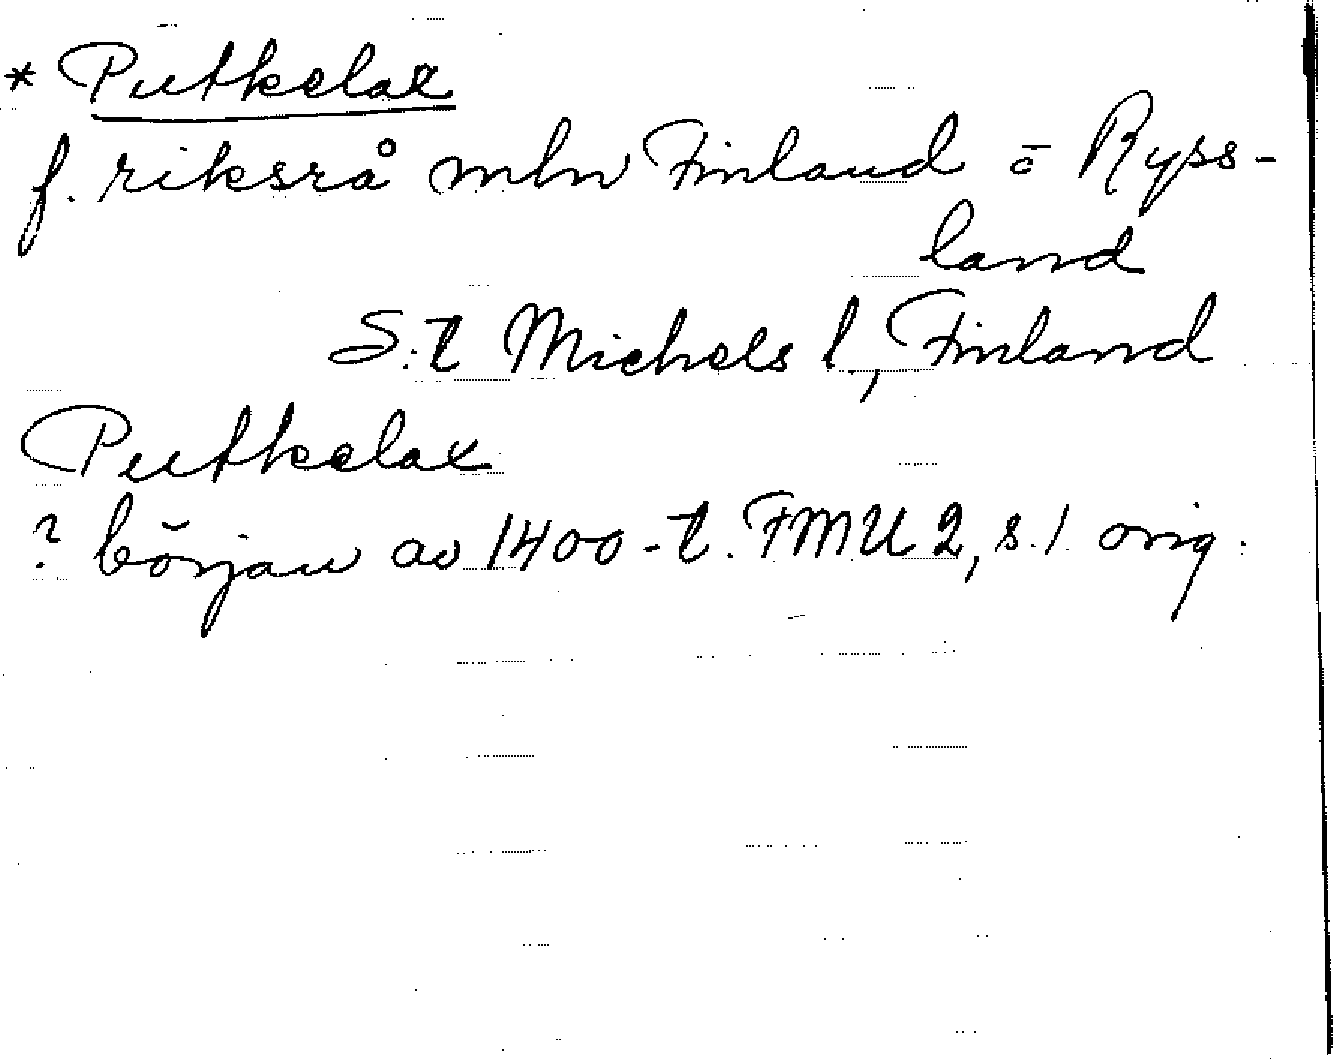 * Putkelax
f. riksrå mln Finland o Ryss-
land
S:t Michels l., Finland
Putkelax
? början av 1400-t. FMU 2, s. 1 orig.